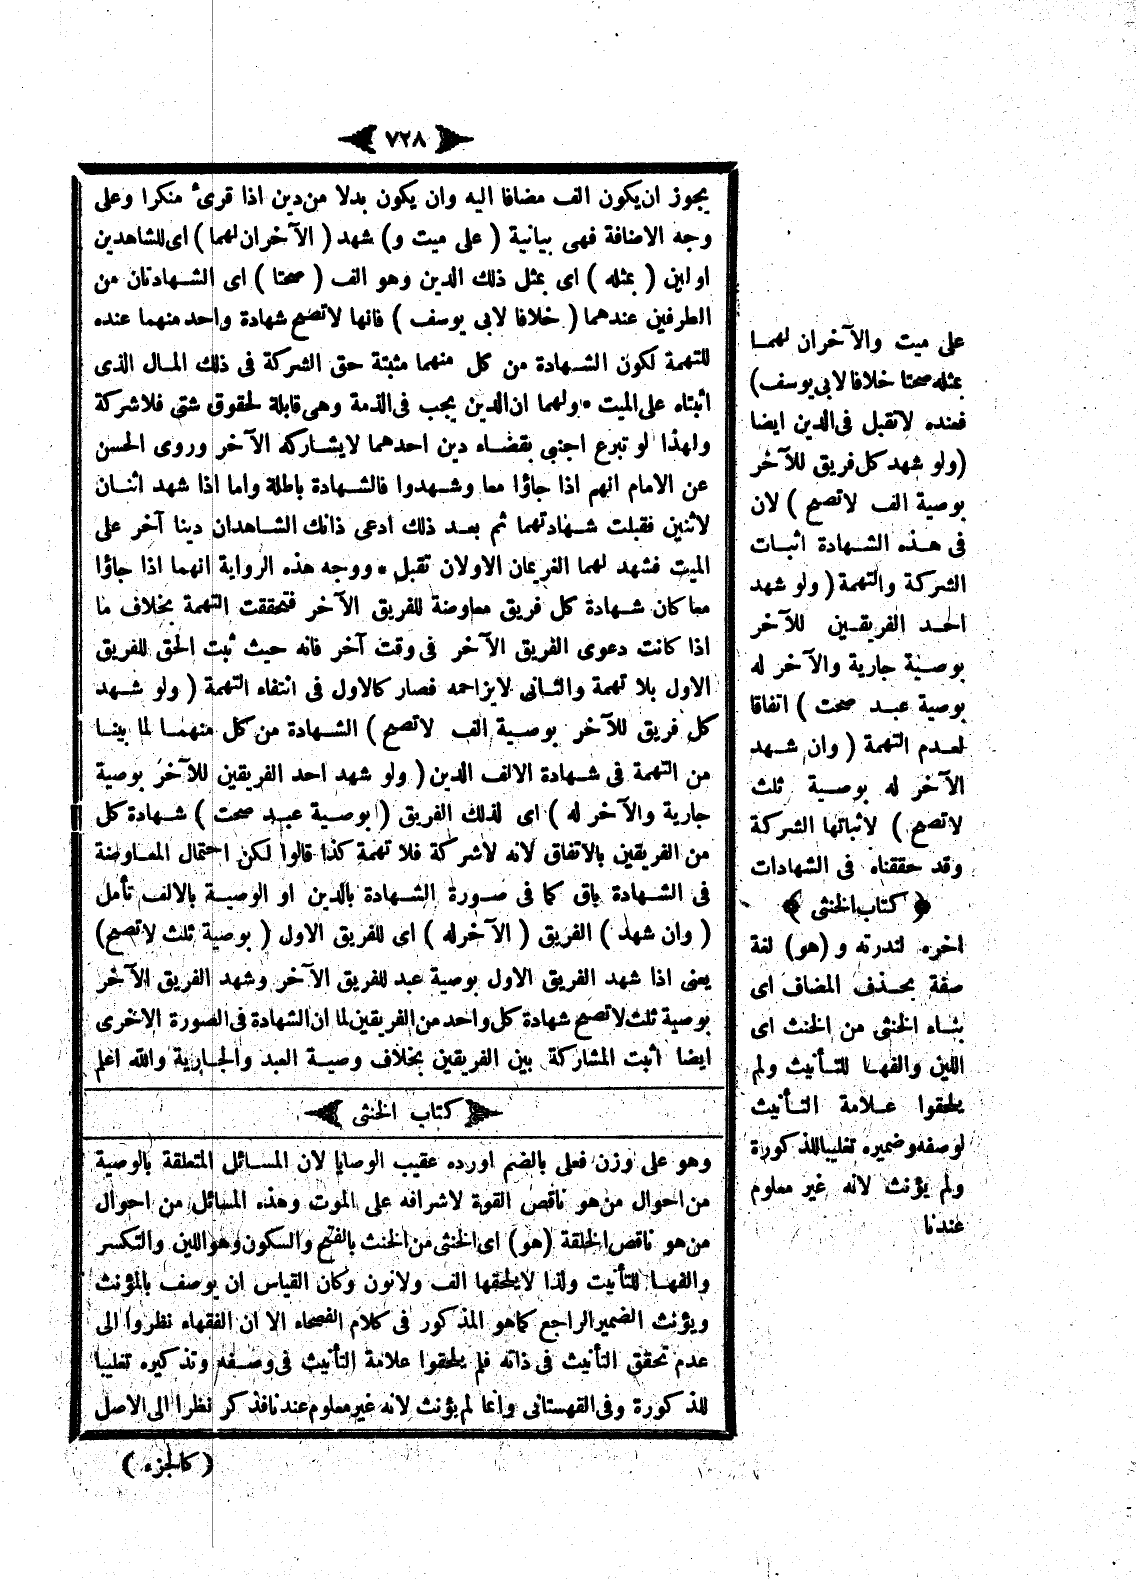 ﴿ ٧٢٨ ﴾
يجوز ان يكون الف مضافا اليه وان يكون بدلا من دين اذا قرئ منكرا وعلى
وجه الاضافة فهى بيانية ( على ميت و) شهد ( الآخران لهما ) اى للشاهدين
اولين ( بمثله ) اى بمثل ذلك الدين وهو الف ( صحتا ) اى الشهادتان من
الطرفين عندهما ( خلافا لابى يوسف ) فانها لاتصح شهادة واحد منهما عنده
للتهمة لكون الشهادة من كل منهما مثبتة حق الشركة فى ذلك المال الذى
اثبتاه على الميت * ولهما ان الدين يجب فى الذمة وهى قابلة لحقوق شتى فلاشركة
ولهذا لو تبرع اجنبى بقضاء دين احدهما لايشاركه الآخر وروى الحسن
عن الامام انهم اذا جاؤا معا وشهدوا فالشهادة باطلة واما اذا شهد اثنان
لاثنين فقبلت شهادتهما ثم بعد ذلك ادعى ذانك الشاهدان دينا آخر على
الميت فشهد لهما الغريمان الاولان تقبل * ووجه هذه الرواية انهما اذا جاؤا
معا كان شهادة كل فريق معاوضة للفريق الآخر فتحققت التهمة بخلاف ما
اذا كانت دعوى الفريق الآخر فى وقت آخر فانه حيث ثبت الحق للفريق
الاول بلا تهمة والثانى لايزاحمه فصار كالاول فى انتفاء التهمة ( ولو شهد
كل فريق للآخر بوصية الف لاتصح ) الشهادة من كل منهما لما بينا
من التهمة فى شهادة الالف الدين ( ولو شهد احد الفريقين للآخر بوصية
جارية والآخر له ) اى لذلك الفريق ( بوصية عبد صحت ) شهادة كل
من الفريقين بالاتفاق لانه لاشركة فلا تهمة كذا قالوا لكن احتمال المعاوضة
فى الشهادة باق كما فى صورة الشهادة بالدين او الوصية بالالف تأمل
( وان شهد ) الفريق ( الآخر له ) اى للفريق الاول ( بوصية ثلث لاتصح )
يعنى اذا شهد الفريق الاول بوصية عبد للفريق الآخر وشهد الفريق الآخر
بوصية ثلث لاتصح شهادة كل واحد من الفريقين لما ان الشهادة فى الصورة الاخرى
ايضا اثبت المشاركة بين الفريقين بخلاف وصية العبد والجارية والله اعلم
﴿ كتاب الخنثى ﴾
وهو على وزن فعلى بالضم اورده عقيب الوصايا لان المسائل المتعلقة بالوصية
من احوال من هو ناقص القوة لاشرافه على الموت وهذه المسائل من احوال
من هو ناقص الخلقة (هو) اى الخنثى من الخنث بالفتح والسكون وهو اللين والتكسر
والفها للتأنيت ولذا لايلحقها الف ولانون وكان القياس ان يوصف بالمؤنث
ويؤنث الضمير الراجع كما هو المذكور فى كلام الفصحاء الا ان الفقهاء نظروا الى
عدم تحقق التأنيث فى ذاته فلم يلحقوا علامة التأنيث فى وصفه وتذكيره تغليبا
للذكورة وفى القهستانى وانما لم يؤنث لانه غير معلوم عندنا فذكر نظرا الى الاصل
( كالجزء )
على ميت والآخران لهما
بمثله صحتا خلافا لابى يوسف)
فعنده لاتقبل فى الدين ايضا
(ولو شهد كل فريق للآخر
بوصية الف لاتصح ) لان
فى هذه الشهادة اثبات
الشركة والتهمة ( ولو شهد
احد الفريقين للآخر
بوصية جارية والآخر له
بوصية عبد صحت ) اتفاقا
لعدم التهمة ( وان شهد
الآخر له بوصية ثلث
لاتصح ) لاثباتها الشركة
وقد حققناه فى الشهادات
﴿ كتاب الخنثى ﴾
اخره لندرته و (هو) لغة
صفة بحذف المضاف اى
بناء الخنثى من الخنث اى
اللين والفها للتأنيث ولم
يلحقوا علامة التأنيث
لوصفه وضميره تغليبا للذكورة
ولم يؤنث لانه غير معلوم
عندنا